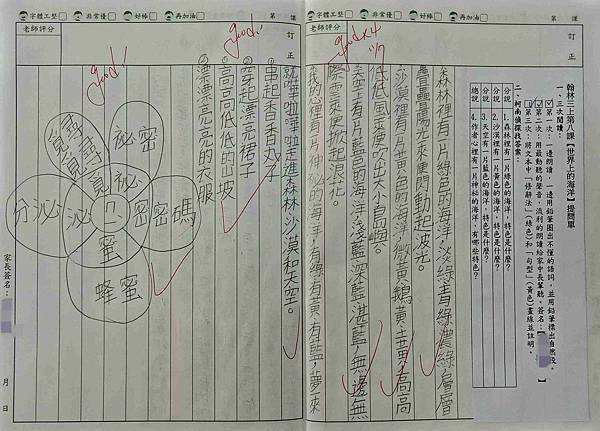 字體工整 非常優 好棒 再加油 第 課
老師評分
訂正
翰林三上第八課【世界上的海洋】提問單
一、三次閱讀：
第一次：一邊朗讀，一邊用鉛筆圈出不懂的語詞，並用鉛筆標出自然段。
第二次：用最動聽的聲音，流利的朗讀給家中長輩聽。簽名：【 】
第三次：將文本中「修辭法」(綠色)和「句型」(黃色)畫線並註明。
二、柯南偵探找答案：
分說 1.森林裡有一片綠色的海洋，特色是什麼？
分說 2.沙漠裡有一片黃色的海洋，特色是什麼？
分說 3.天空有一片藍色的海洋，特色是什麼？
總說 4.作者心裡有一片神祕的海洋，有哪些特色？
good x4
11/7
森林裡有一片綠色的海洋，淡綠、青綠、濃綠，層層
疊疊，陽光來便閃動起波光。
沙漠裡有一片黃色的海洋，微黃、鵝黃、土黃，高高
低低，風來便吹出大小島嶼。
天空有一片藍色的海洋，淺藍、深藍、湛藍，無邊無
際，雲來便掀起浪花。
我的心裡有一片神祕的海洋，有綠、有黃、有藍，夢一來
字體工整 非常優 好棒 再加油 第 課
老師評分
訂正
就嘩啦嘩啦走進森林、沙漠和天空。
串起香香丸子
穿起漂亮裙子
good!
高高低低的山坡
漂漂亮亮的衣服
good!
尋覓
覓
祕密
祕
分泌
泌
密
密碼
蜜
蜂蜜
家長簽名：
月 日